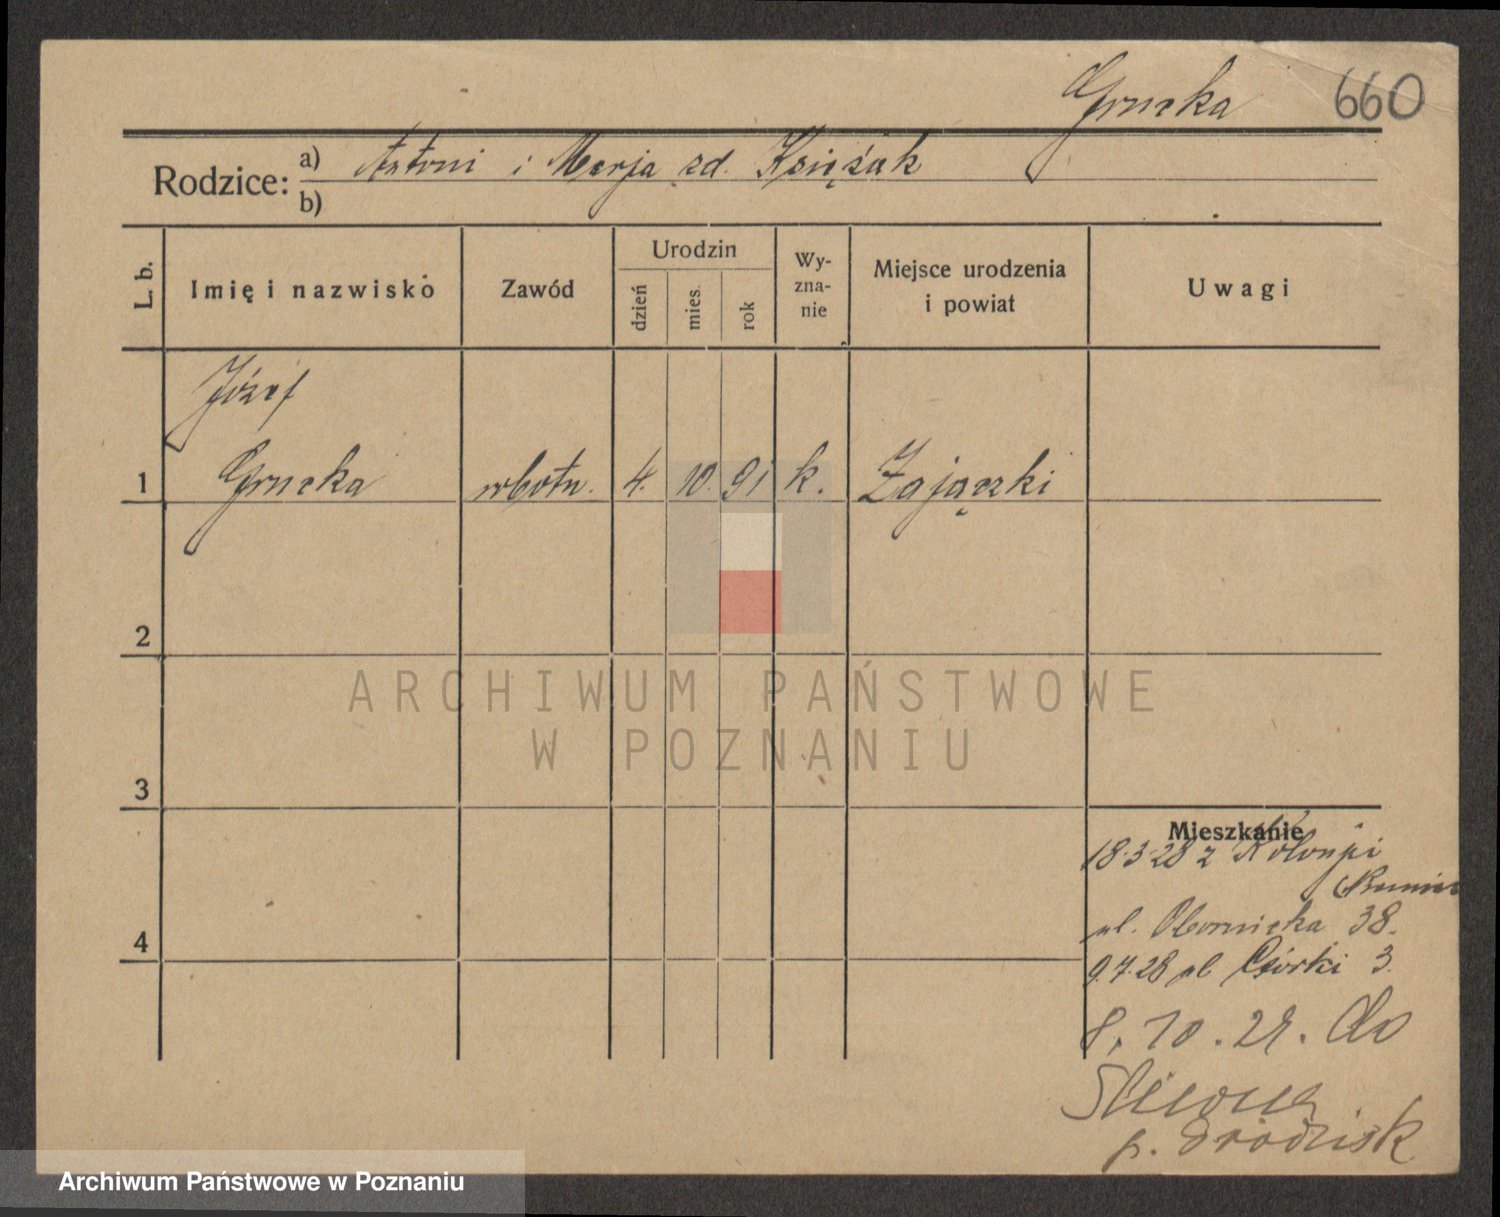 Grucka 660
Rodzice: a) Antoni i Marja zd. Księżak
b)
L. b.
Imię i nazwisko
Zawód
Urodzin
dzień
mies.
rok
Wy-
zna-
nie
Miejsce urodzenia
i powiat
Uwagi
Józef
1 Grucka robotn. 4. 10. 91 k. Zajączki
2
3
4
Mieszkanie
18.3.28 z Kolonji
ul. Obornicka 38.
9.7.28 ul Górki 3.
8.10.28. do
p. Grodzisk
ARCHIWUM PAŃSTWOWE
W POZNANIU
Archiwum Państwowe w Poznaniu